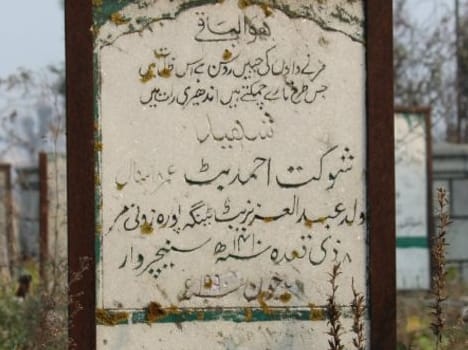 ھوالباقی
مرنے والوں کی جبیں روشن ہے اس ظلمات میں
جس طرح تارے چمکتے ہیں اندھیری رات میں
شہید
شوکت احمد بٹ عمر سال
ولد عبدالعزیز بٹ پورہ زونی مر
۸ ذی قعدہ ۱۴۱۰ھ سنیچروار
جون ء